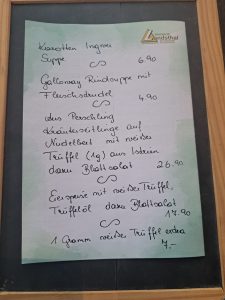 Karotten Ingwer
Suppe 6.90
Galloway Rindsuppe mit
Fleischstrudel 4.90
aus Perschling
Kräuterseitlinge auf
Nudelbett mit weißer
Trüffel (1g) aus Istrien
dazu Blattsalat 26.90
Eierspeise mit weißer Trüffel,
Trüffelöl dazu Blattsalat
17.90
1 Gramm weiße Trüffel extra
7,-